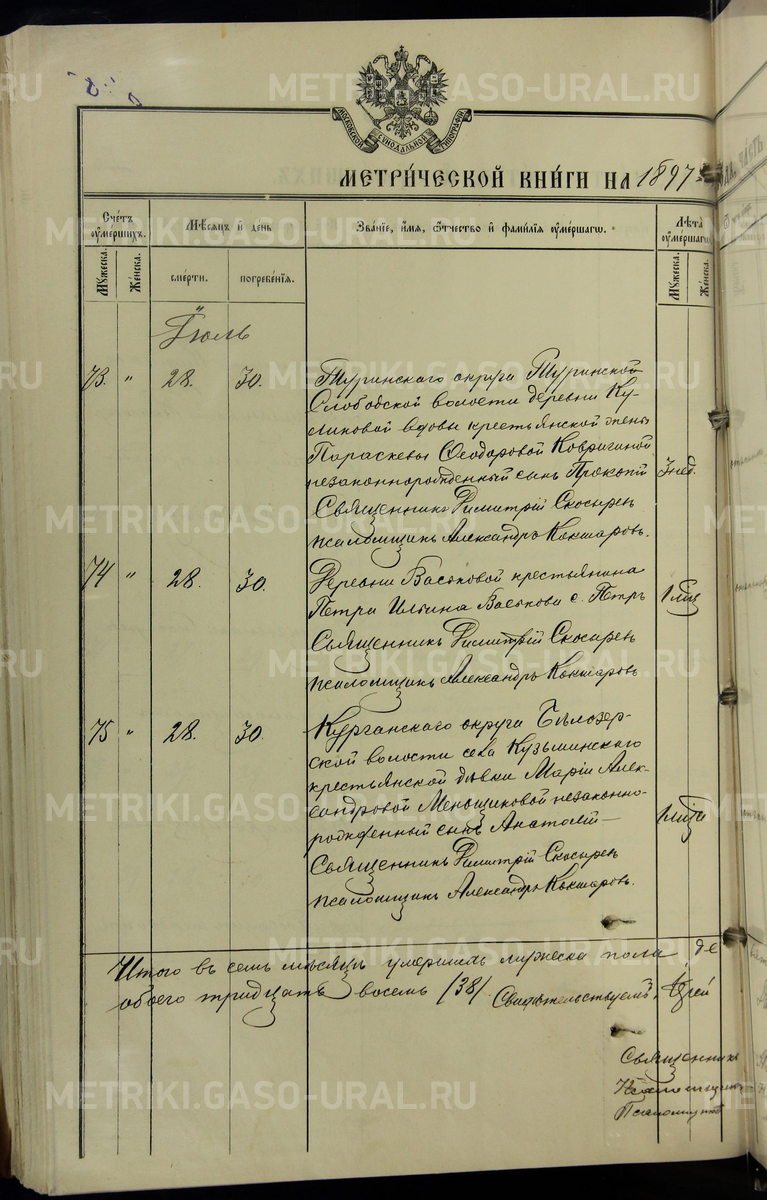 METRIKI.GASO-URAL.RU
МОСКОВСКОЙ СѴНОДАЛЬНОЙ ТИПОГРАФІИ
МЕТРИ́ЧЕСКОЙ КНИ́ГИ НА 1897
Счетъ оумершихъ.
Мѣсяцъ и день
Званіе, имя, отчество и фамилія оумершагѡ.
Лѣта оумершагѡ
Мужеска. Женска. смерти. погребенія. Мужеска. Женска.
Іюль
73. " 28. 30. Туринскаго округа Туринской
Слободской волости деревни Ку-
ликовой вдовы крестьянской жены
Параскевы Ѳеодоровой Ковригиной
незаконнорожденный сынъ Прокопій 3 нед.
Священникъ Димитрій Скосыревъ
псаломщикъ Александръ Кокшаровъ.
74 " 28. 30. Деревни Васьковой крестьянина
Петра Ильина Васькова с. Петръ 1 мѣс
Священникъ Димитрій Скосыревъ
псаломщикъ Александръ Кокшаровъ
75 " 28. 30. Курганскаго округа Бѣлозер-
ской волости села Кузьминскаго
крестьянской дѣвки Маріи Алек-
сандровой Меньщиковой незаконно-
рожденный сынъ Анатолій
Священникъ Димитрій Скосыревъ
псаломщикъ Александръ Кокшаровъ.
Итого въ семъ мѣсяцѣ умершихъ мужеска пола
обоего тридцать восемь /38/ Свидѣтельствуемъ
Священникъ
Псаломщикъ